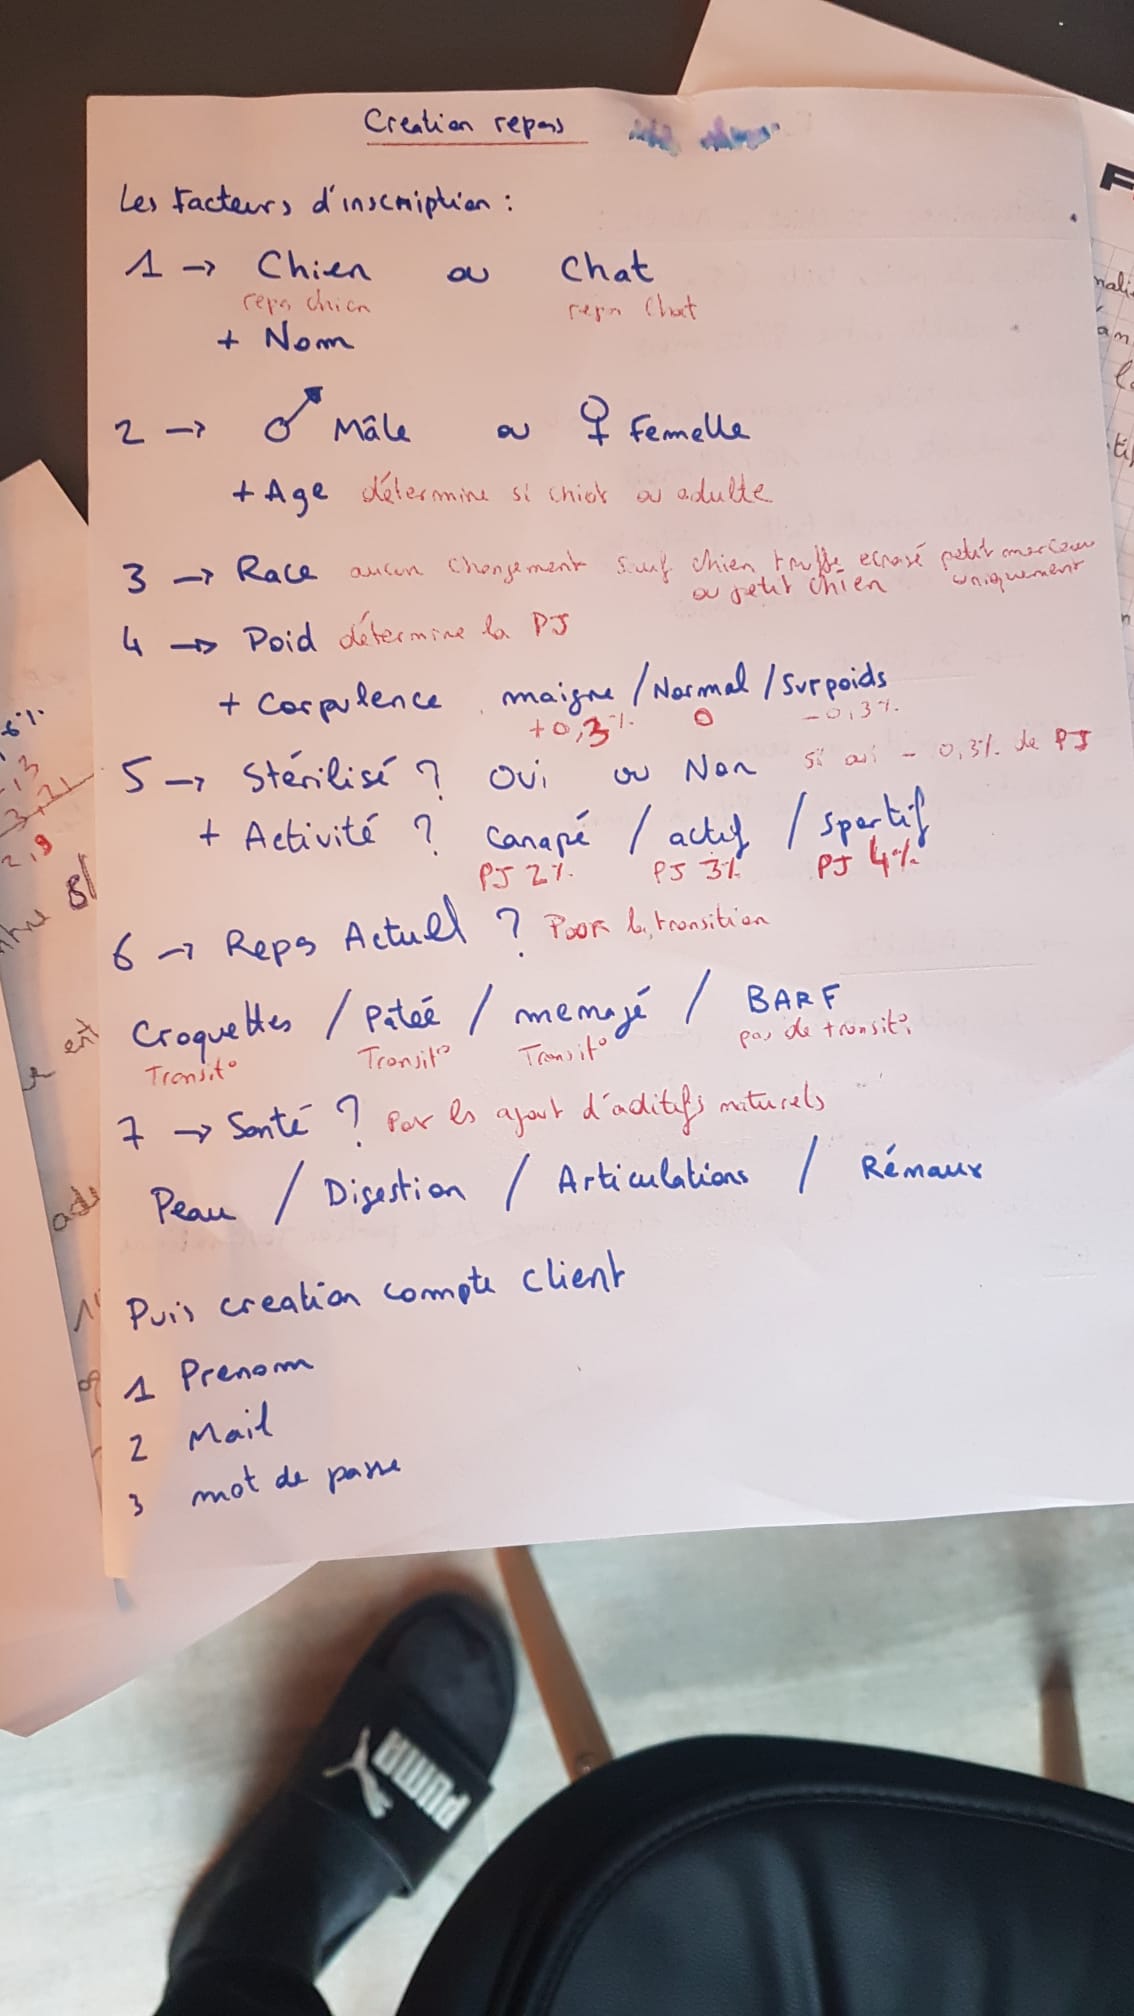 Creation repas
Les Facteurs d'inscription :
1 → Chien ou Chat
repas chien repas Chat
+ Nom
2 → ♂ Mâle ou ♀ Femelle
+ Age détermine si chiot ou adulte
3 → Race aucun changement sauf chien truffe ecrasé petit morceau
ou petit chien uniquement
4 → Poid détermine la PJ
+ Corpulence maigre / Normal / Surpoids
+0,3% 0 -0,3%
5 → Stérilisé ? Oui ou Non si oui - 0,3% de PJ
+ Activité ? Canapé / actif / Sportif
PJ 2% PJ 3% PJ 4%
6 → Reps Actuel ? Pour la transition
Croquettes / Pâteé / menagé / BARF
Transit° Transit° Transit° pas de transit°
7 → Santé ? Par les ajout d'aditifs naturels
Peau / Digestion / Articulations / Rénaux
Puis creation compte client
1 Prenom
2 Mail
3 mot de passe
PUMA